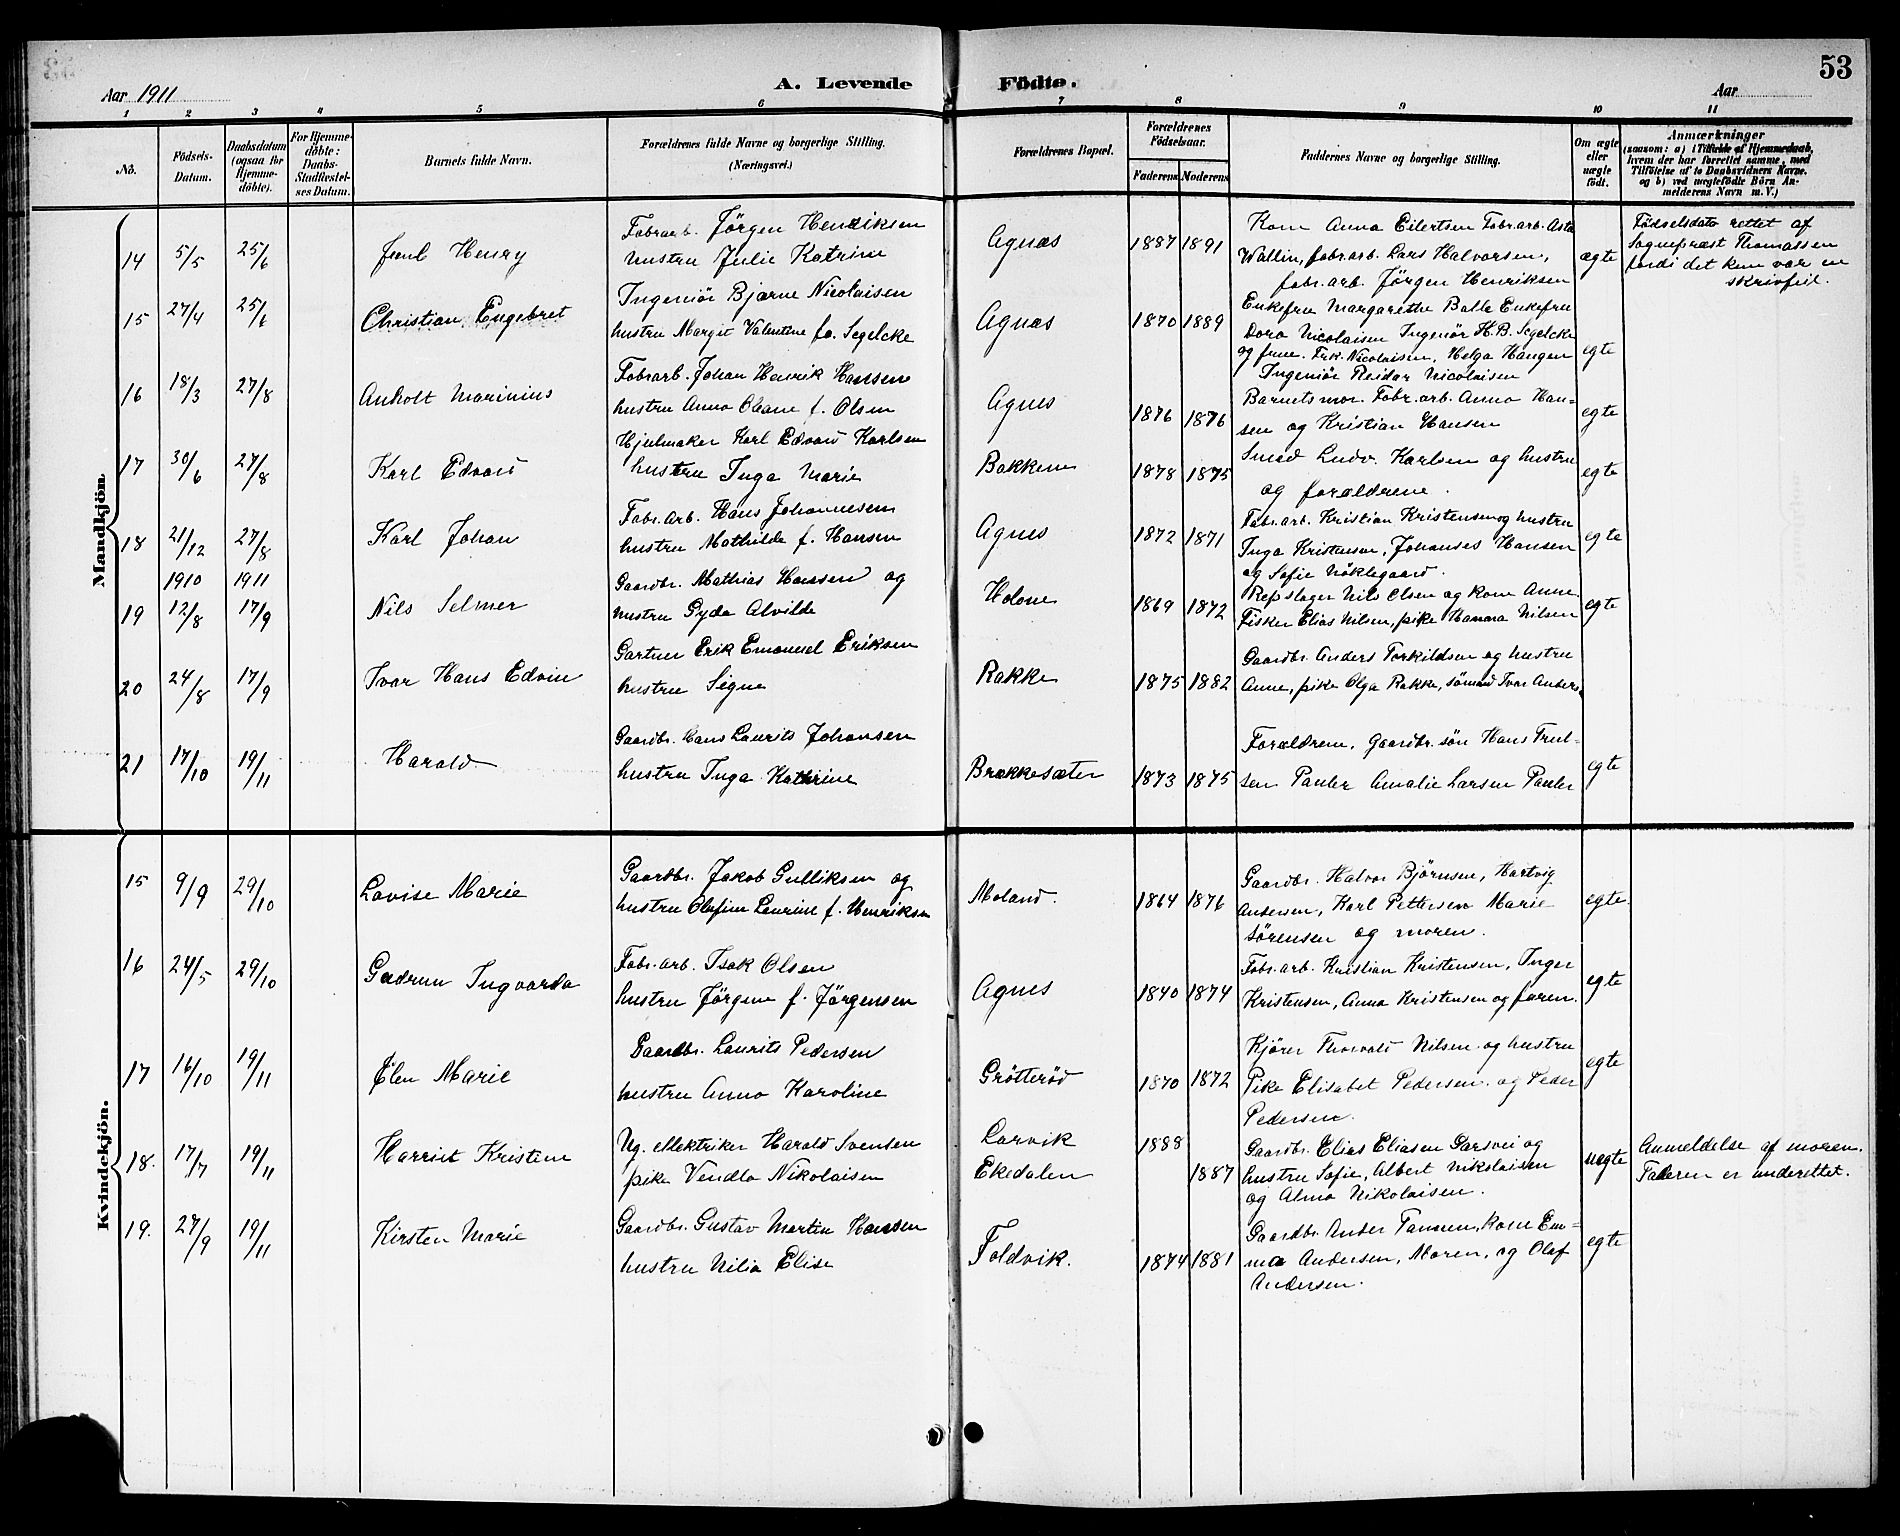 53
Aar 1911
A. Levende Födte.
Aar
1 2 3 4 5 6 7 8 9 10 11
No.
Födsels-Datum.
Daabsdatum (ogsaa for Hjemmedöbte).
For Hjemmedöbte: Daabs-Stadfestelses Datum.
Barnets fulde Navn.
Forældrenes fulde Navne og borgerlige Stilling.
(Næringsvei.)
Forældrenes Bopæl.
Forældrenes Födselsaar.
Faderens Moderens
Faddernes Navne og borgerlige Stilling.
Om ægte eller uægte födt.
Anmærkninger
(saasom: a) i Tilfælde af Hjemmedaab, hvem der har forrettet samme, med Tilföielse af to Daabsvidners Navne, og b) ved uægtefödte Börn Anmelderens Navn m. V.)
Mandkjön.
14 5/5 25/6 Henry
Fabrarb. Jörgen Henriksen
hustru Julie Katrine
Agnæs 1887 1891
Kom Anna Eilertsen Fabr.arb. Asta
Wallin, fabr.arb. Lars Halvorsen,
fabr.arb. Jörgen Henriksen
ægte
Födselsdato rettet af
Sogneprest Thomassen
fordi det kun var en
skrivfeil.
15 27/4 25/6 Christian Engebret
Ingeniör Bjarne Nicolaisen
hustru Margit Valentine fo. Segelcke
Agnæs 1870 1889
Enkefru Margarethe Balle Enkefru
Dora Nicolaisen Ingeniör H.B. Segelcke
og frue. Frk. Nicolaisen, Helga Haugen
Ingeniör Reidar Nicolaisen
egte
16 18/3 27/8 Anholt Marinius
Fabrarb. Johan Henrik Hansen
hustru Anna Oleane f. Olsen
Agnes 1876 1876
Barnets mor. Fabr. arb. Anna Han-
sen og Kristian Hansen
egte
17 30/6 27/8 Karl Edvard
Hjulmaker Karl Edvard Karlsen
hustru Inga Marie
Bakkene 1878 1875
Smed Ludv. Karlsen og hustru
og forældrene.
egte
18 21/12 1910 27/8 1911 Karl Johan
Fabr. arb. Hans Johannesen
hustru Mathilde f. Hansen
Agnes 1872 1871
Fabr. arb. Kristian Kristensen og hustru
Inga Kristensen, Johanses Hansen
og Sofie Nöklegaard.
egte
19 12/8 17/9 Nils Selmer
Gaardbr. Mathias Hansen og
hustru Gyda Alvilde
Holone 1869 1872
Repslager Nils Olsen og kone Anne
Fisker Elias Nilsen, pike Hanna Nilsen
egte
20 24/8 17/9 Ivar Hans Edvin
Gartner Erik Emanuel Eriksen
hustru Signe
Rakke 1875 1882
Gaardbr. Anders Torkildsen og hustru
Anne, pike Olga Rakke, sömand Ivar Anders
21 17/10 19/11 Harald
Gaardbr. Hans Laurits Johansen
hustru Inga Kathrine
Brekkesæter 1873 1875
Forældrene, Gaardbr. sön Hans Trul-
sen Pauler Amalie Larsen Pauler
egte
Kvindekjön.
15 9/9 29/10 Lovise Marie
Gaardbr. Jakob Gulliksen og
hustru Olufine Laurine f. Henriksen
Moland. 1864 1876
Gaardbr. Halvor Björnsen, Hartvig
Andersen, Karl Pettersen Marie
Sörensen og moren.
egte.
16 24/5 29/10 Gudrun Ingvarda
Fabr. arb. Isak Olsen
hustru Jörgine f. Jörgensen
Agnes 1840 1874
Fabr. arb. Kristian Kristensen, Inger
Kristensen, Anna Kristensen og faren.
egte
17 16/10 19/11 Elen Marie
Gaardbr. Laurits Pedersen
hustru Anna Karoline
Grötteröd 1870 1872
Kjörer Thorvald Nilsen og hustru
Pike Elisabet Pedersen og Peder
Pedersen.
egte
18. 17/7 19/11 Harriet Kristine
Ug. elektriker Harald Svensen
pike Vendla Nikolaisen
Larvik 1888
Ekedalen 1887
Gaardbr. Elias Eliasen Farsvei og
hustru Sofie, Albert Nikolaisen
og Alma Nikolaisen.
uegte
Anmeldelse af moren.
Faderen er underettet.
19. 27/9 19/11 Kirsten Marie
Gaardbr. Gustav Martin Hansen
hustru Nilia Elise
Foldvik. 1874 1881
Gaardbr. Anders Tanum, kone Em-
ma Andersen, Moren, og Olaf
Andersen.
egte